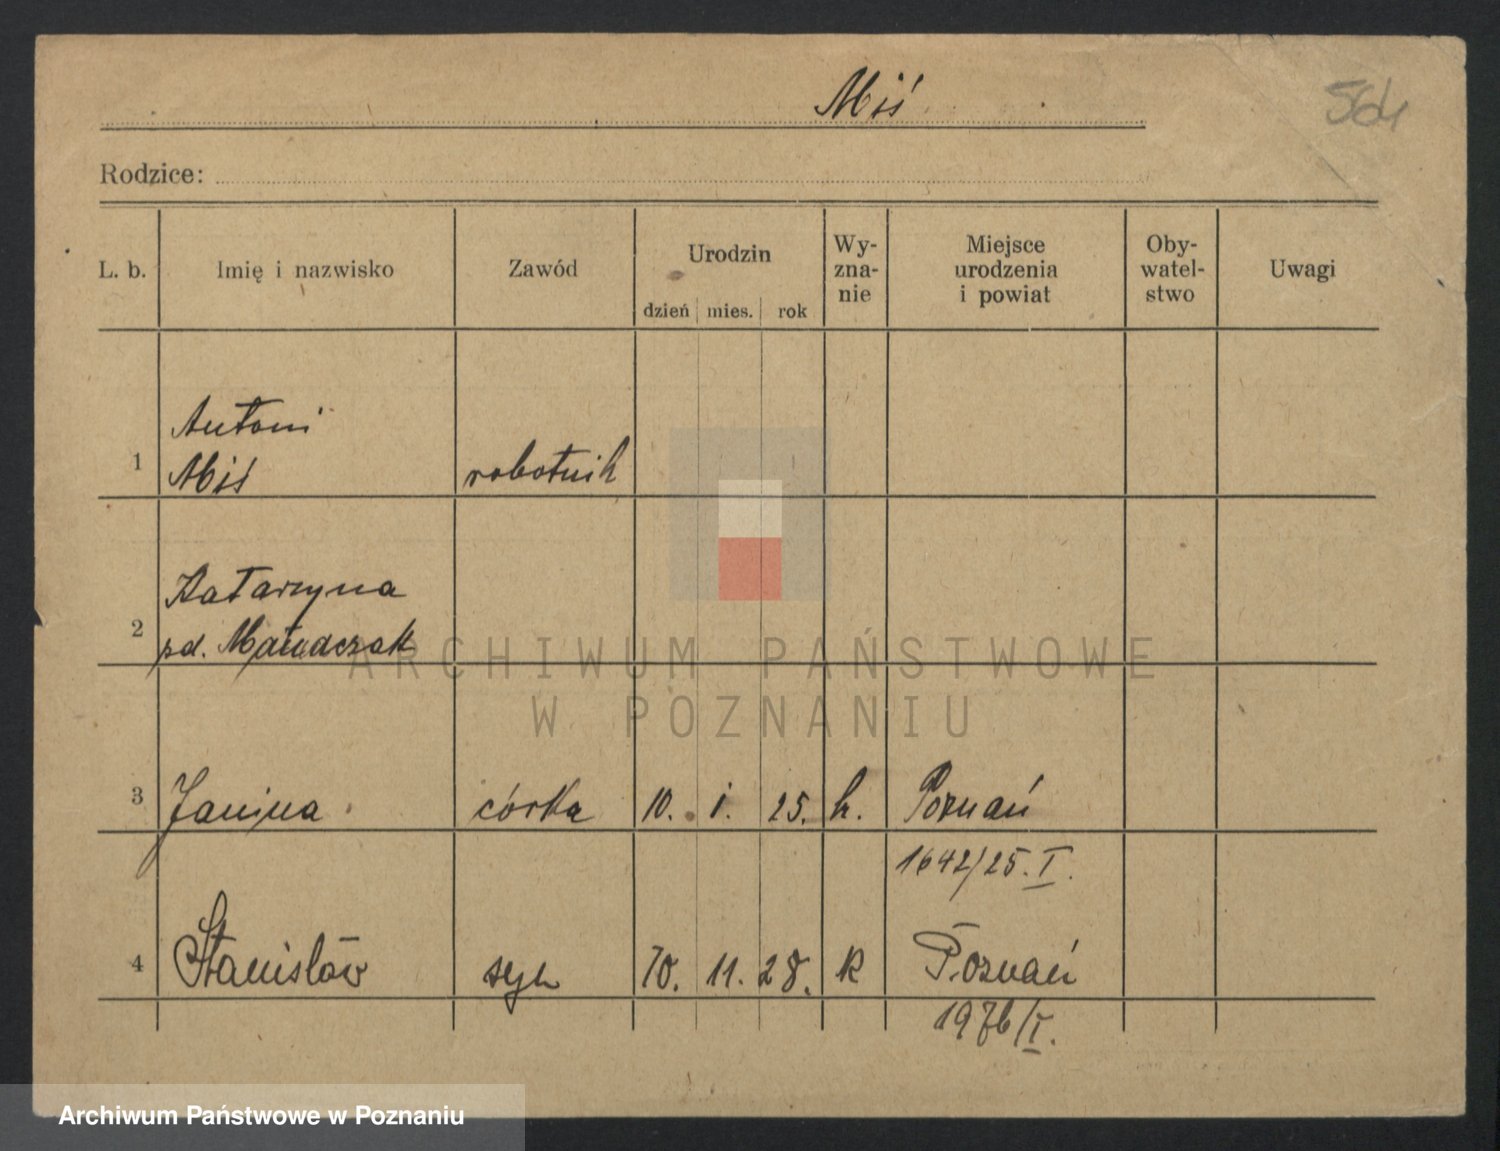 Miś
564
Rodzice:
L. b.
Imię i nazwisko
Zawód
Urodzin
dzień mies. rok
Wy-
zna-
nie
Miejsce
urodzenia
i powiat
Oby-
watel-
stwo
Uwagi
1
Antoni
Miś
robotnik
2
Katarzyna
zd.
3
Janina
córka
10. I. 25.
k.
Poznań
1642/25. I.
4
Stanisław
syn
10. 11. 28.
k
Poznań
1976/I.
ARCHIWUM PAŃSTWOWE
W POZNANIU
Archiwum Państwowe w Poznaniu